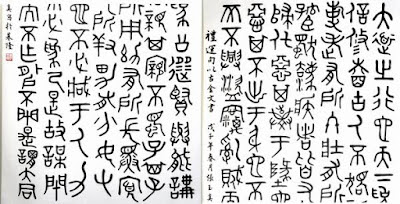 大道之行也天下
信修睦故人不獨
使老有所終壯有所
矜寡孤獨廢疾者皆有
歸貨惡其棄於地
惡其不出於身也不
而不興盜竊亂賊
禮運句以吉金文書 戊戌年春月張玉真
為公選賢與能講
親其親不獨子其子
用幼有所長
所養男有分女有
也不必藏於己力
必為己是故謀閉
而不作故外戶而不閉是謂大同